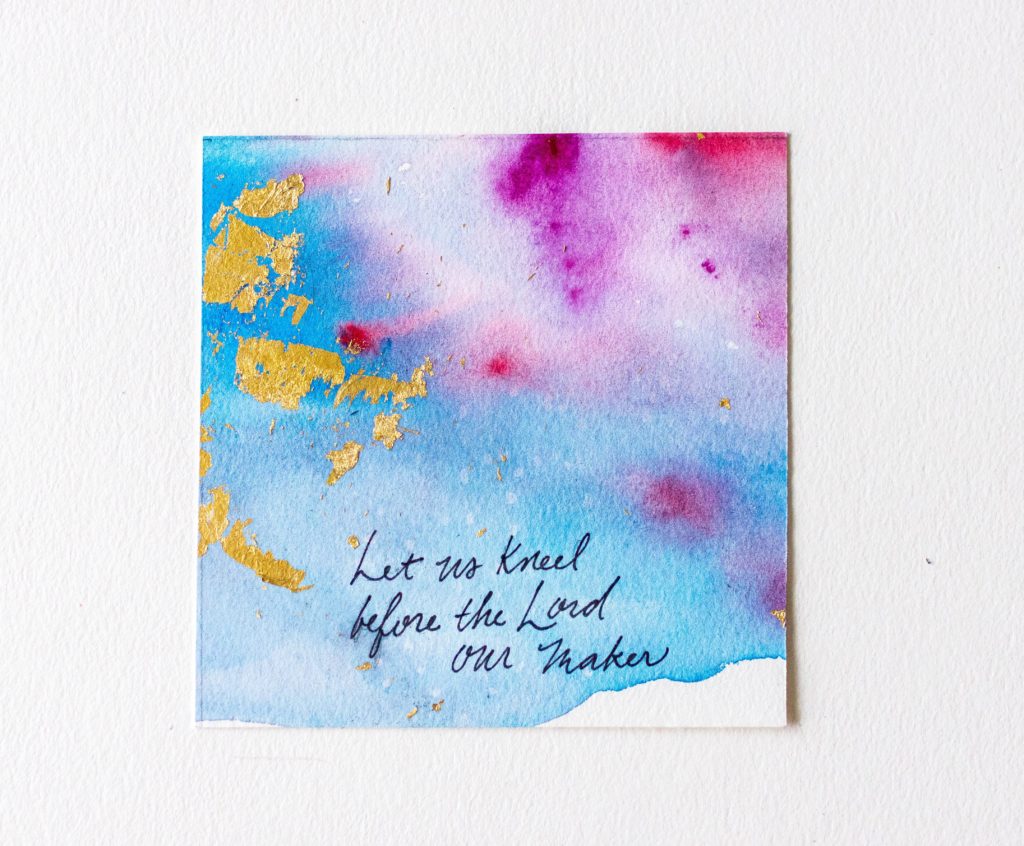 Let us Kneel
before the Lord
our Maker